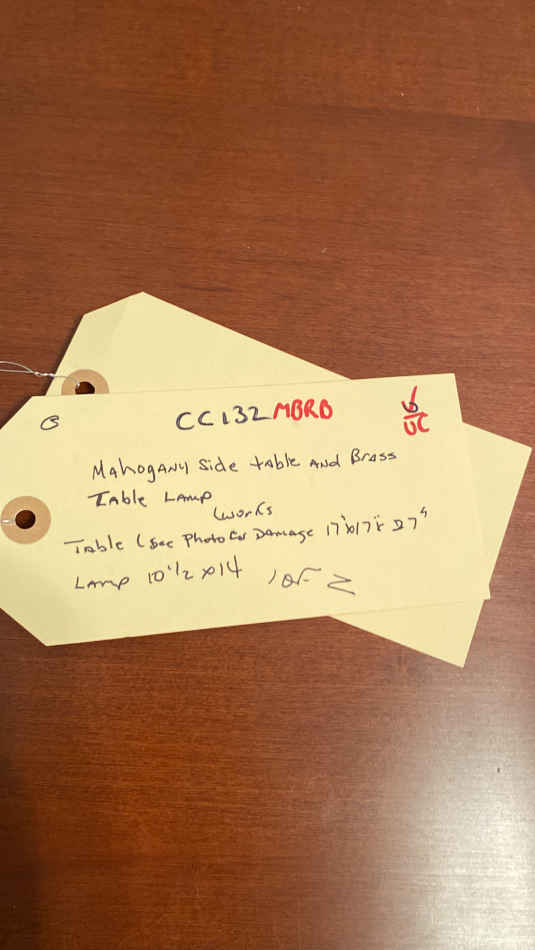 B CC132 MBRD
UC
Mahogany Side table and Brass
Table Lamp
(works
Table (see Photo for Damage 17"x17"x 27"
Lamp 10 1/2 x 14 1 OF 2